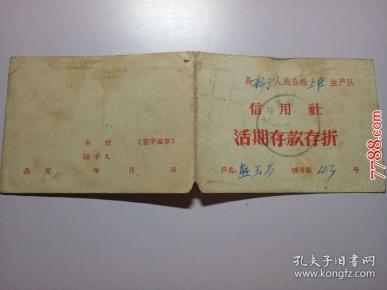 县 人民公社 上庄 生产队
信用社
活期存款存折
户名: 账号第 103 号
主任 (签字盖章)
经手人
公元 年 月 日
7788.com
孔夫子旧书网